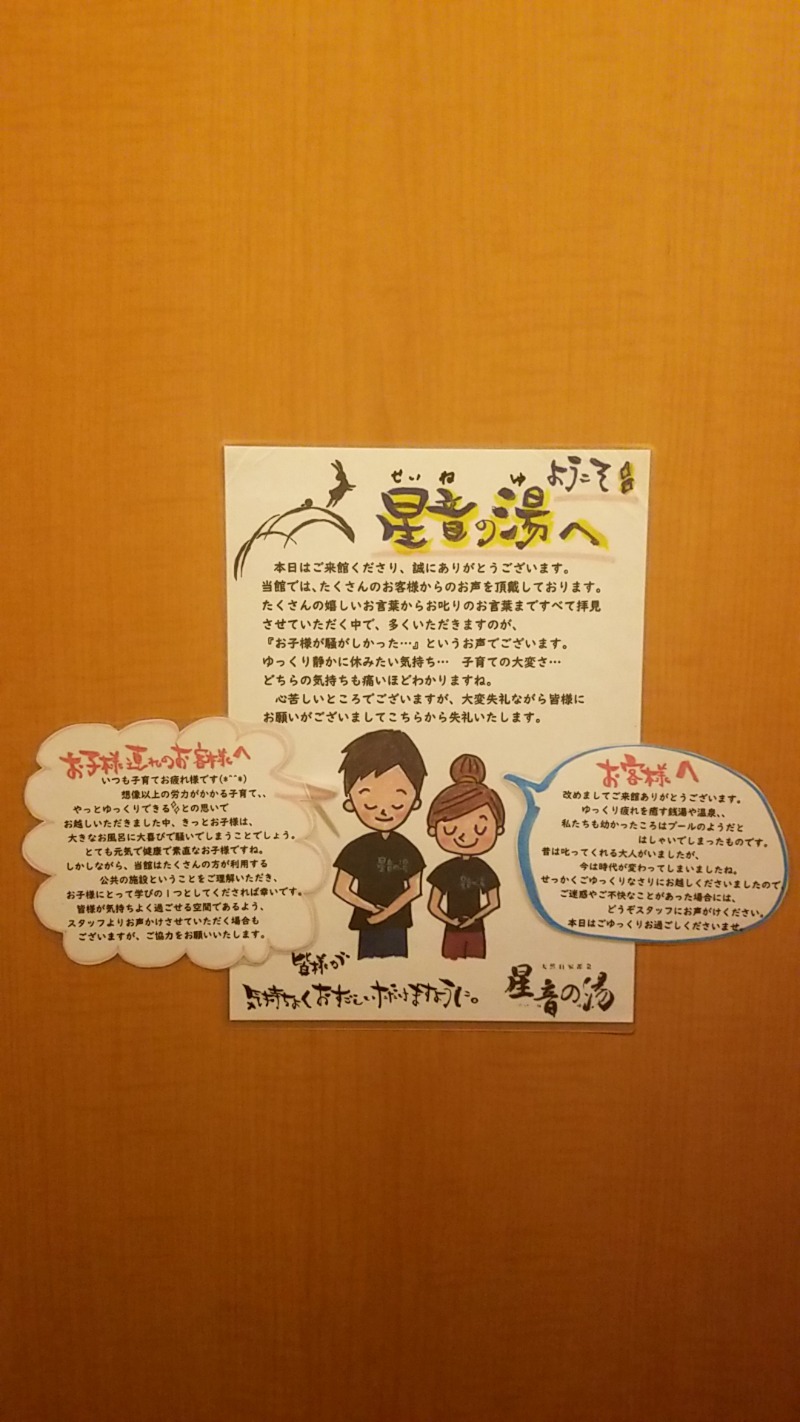 ようこそ
せいね ゆ
星音の湯へ
本日はご来館くださり、誠にありがとうございます。
当館では、たくさんのお客様からのお声を頂戴しております。
たくさんの嬉しいお言葉からお叱りのお言葉まですべて拝見
させていただく中で、多くいただきますのが、
『お子様が騒がしかった…』というお声でございます。
ゆっくり静かに休みたい気持ち… 子育ての大変さ…
どちらの気持ちも痛いほどわかりますね。
心苦しいところでございますが、大変失礼ながら皆様に
お願いがございましてこちらから失礼いたします。
お子様連れのお客様へ
いつも子育てお疲れ様です(*^^*)
想像以上の労力がかかる子育て、、
やっとゆっくりできる✨との思いで
お越しいただきました中、きっとお子様は、
大きなお風呂に大喜びで騒いでしまうことでしょう。
とても元気で健康で素直なお子様ですね。
しかしながら、当館はたくさんの方が利用する
公共の施設ということをご理解いただき、
お子様にとって学びの1つとしてくだされば幸いです。
皆様が気持ちよく過ごせる空間であるよう、
スタッフよりお声かけさせていただく場合も
ございますが、ご協力をお願いいたします。
お客様へ
改めましてご来館ありがとうございます。
ゆっくり疲れを癒す銭湯や温泉、、
私たちも幼かったころはプールのようだと
はしゃいでしまったものです。
昔は叱ってくれる大人がいましたが、
今は時代が変わってしまいましたね。
せっかくごゆっくりなさりにお越しくださいましたので
ご迷惑やご不快なことがあった場合には、
どうぞスタッフにお声がけください。
本日はごゆっくりお過ごしくださいませ。
星音の湯
星音の湯
皆様が
気持ちよくおすごしいただけますように。
星音の湯